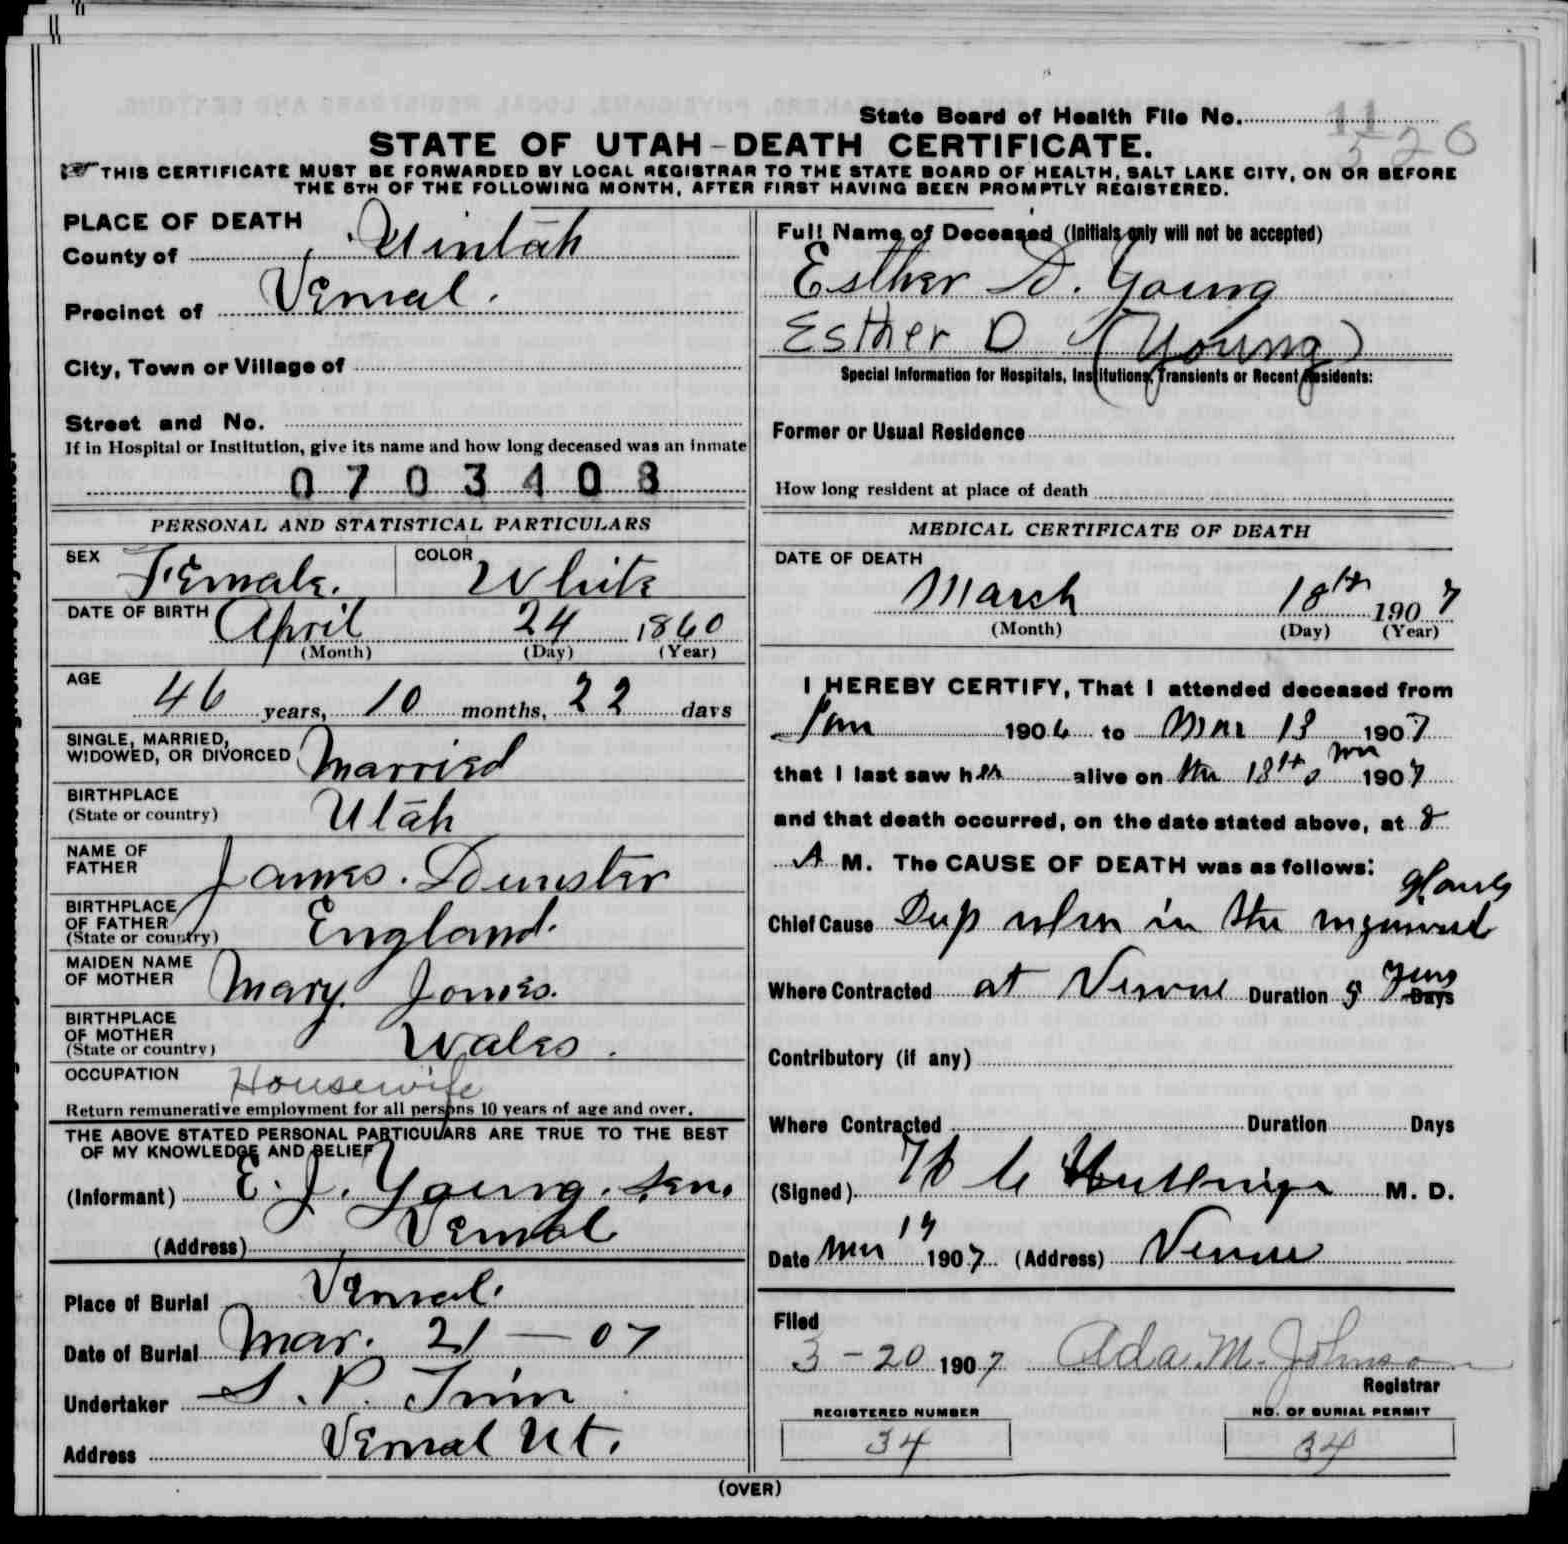 State Board of Health File No. 11
520
STATE OF UTAH-DEATH CERTIFICATE.
THIS CERTIFICATE MUST BE FORWARDED BY LOCAL REGISTRAR TO THE STATE BOARD OF HEALTH, SALT LAKE CITY, ON OR BEFORE
THE 5TH OF THE FOLLOWING MONTH, AFTER FIRST HAVING BEEN PROMPTLY REGISTERED.
PLACE OF DEATH
County of Uintah
Precinct of Vernal.
City, Town or Village of
Street and No.
If in Hospital or Institution, give its name and how long deceased was an inmate
0703408
PERSONAL AND STATISTICAL PARTICULARS
SEX Female. COLOR White
DATE OF BIRTH April 24 1860
(Month) (Day) (Year)
AGE 46 years, 10 months, 22 days
SINGLE, MARRIED,
WIDOWED, OR DIVORCED Married
BIRTHPLACE
(State or country) Utah
NAME OF
FATHER James. Dunster
BIRTHPLACE
OF FATHER
(State or country) England.
MAIDEN NAME
OF MOTHER Mary. Jones.
BIRTHPLACE
OF MOTHER
(State or country) Wales.
OCCUPATION Housewife
Return remunerative employment for all persons 10 years of age and over.
THE ABOVE STATED PERSONAL PARTICULARS ARE TRUE TO THE BEST
OF MY KNOWLEDGE AND BELIEF
(Informant) E. J. Young. Sen.
(Address) Vernal
Place of Burial Vernal.
Date of Burial Mar. 21 - 07
Undertaker S. P. Trim
Address Vernal Ut.
Full Name of Deceased (Initials only will not be accepted)
Esther D. Young
Esther D (Young)
Special Information for Hospitals, Institutions, Transients or Recent Residents:
Former or Usual Residence
How long resident at place of death
MEDICAL CERTIFICATE OF DEATH
DATE OF DEATH
March 18th 1907
(Month) (Day) (Year)
I HEREBY CERTIFY, That I attended deceased from
Jan 1906 to Mar 18 1907
that I last saw her alive on the 18th Mar 1907
and that death occurred, on the date stated above, at 8
A M. The CAUSE OF DEATH was as follows:
glands
Chief Cause Deep ulcer in the inguinal
Where Contracted at Vernal Duration 5 years Days
Contributory (if any)
Where Contracted Duration Days
(Signed) M. D.
Date Mar 19 1907 (Address) Vernal
Filed
3-20 1907 Ada. M. Johnson
Registrar
REGISTERED NUMBER
34
NO. OF BURIAL PERMIT
34
(OVER)